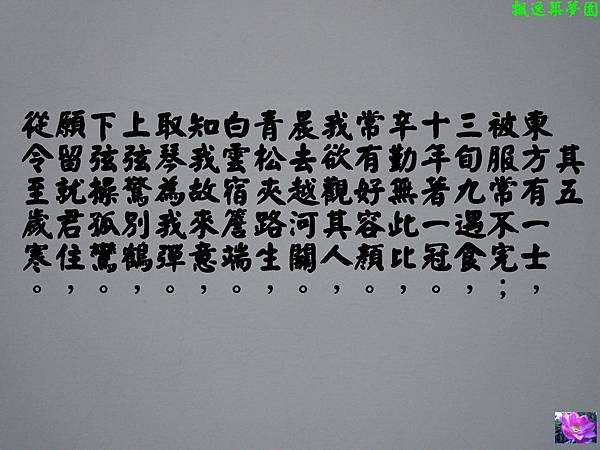 飄逸築夢園
其五
東方有一士，
被服常不完；
三旬九遇食，
十年著一冠。
辛勤無此比，
常有好容顏。
我欲觀其人，
晨去越河關。
青松夾路生，
白雲宿簷端。
知我故來意，
取琴為我彈。
上弦驚別鶴，
下弦操孤鸞。
願留就君住，
從令至歲寒。